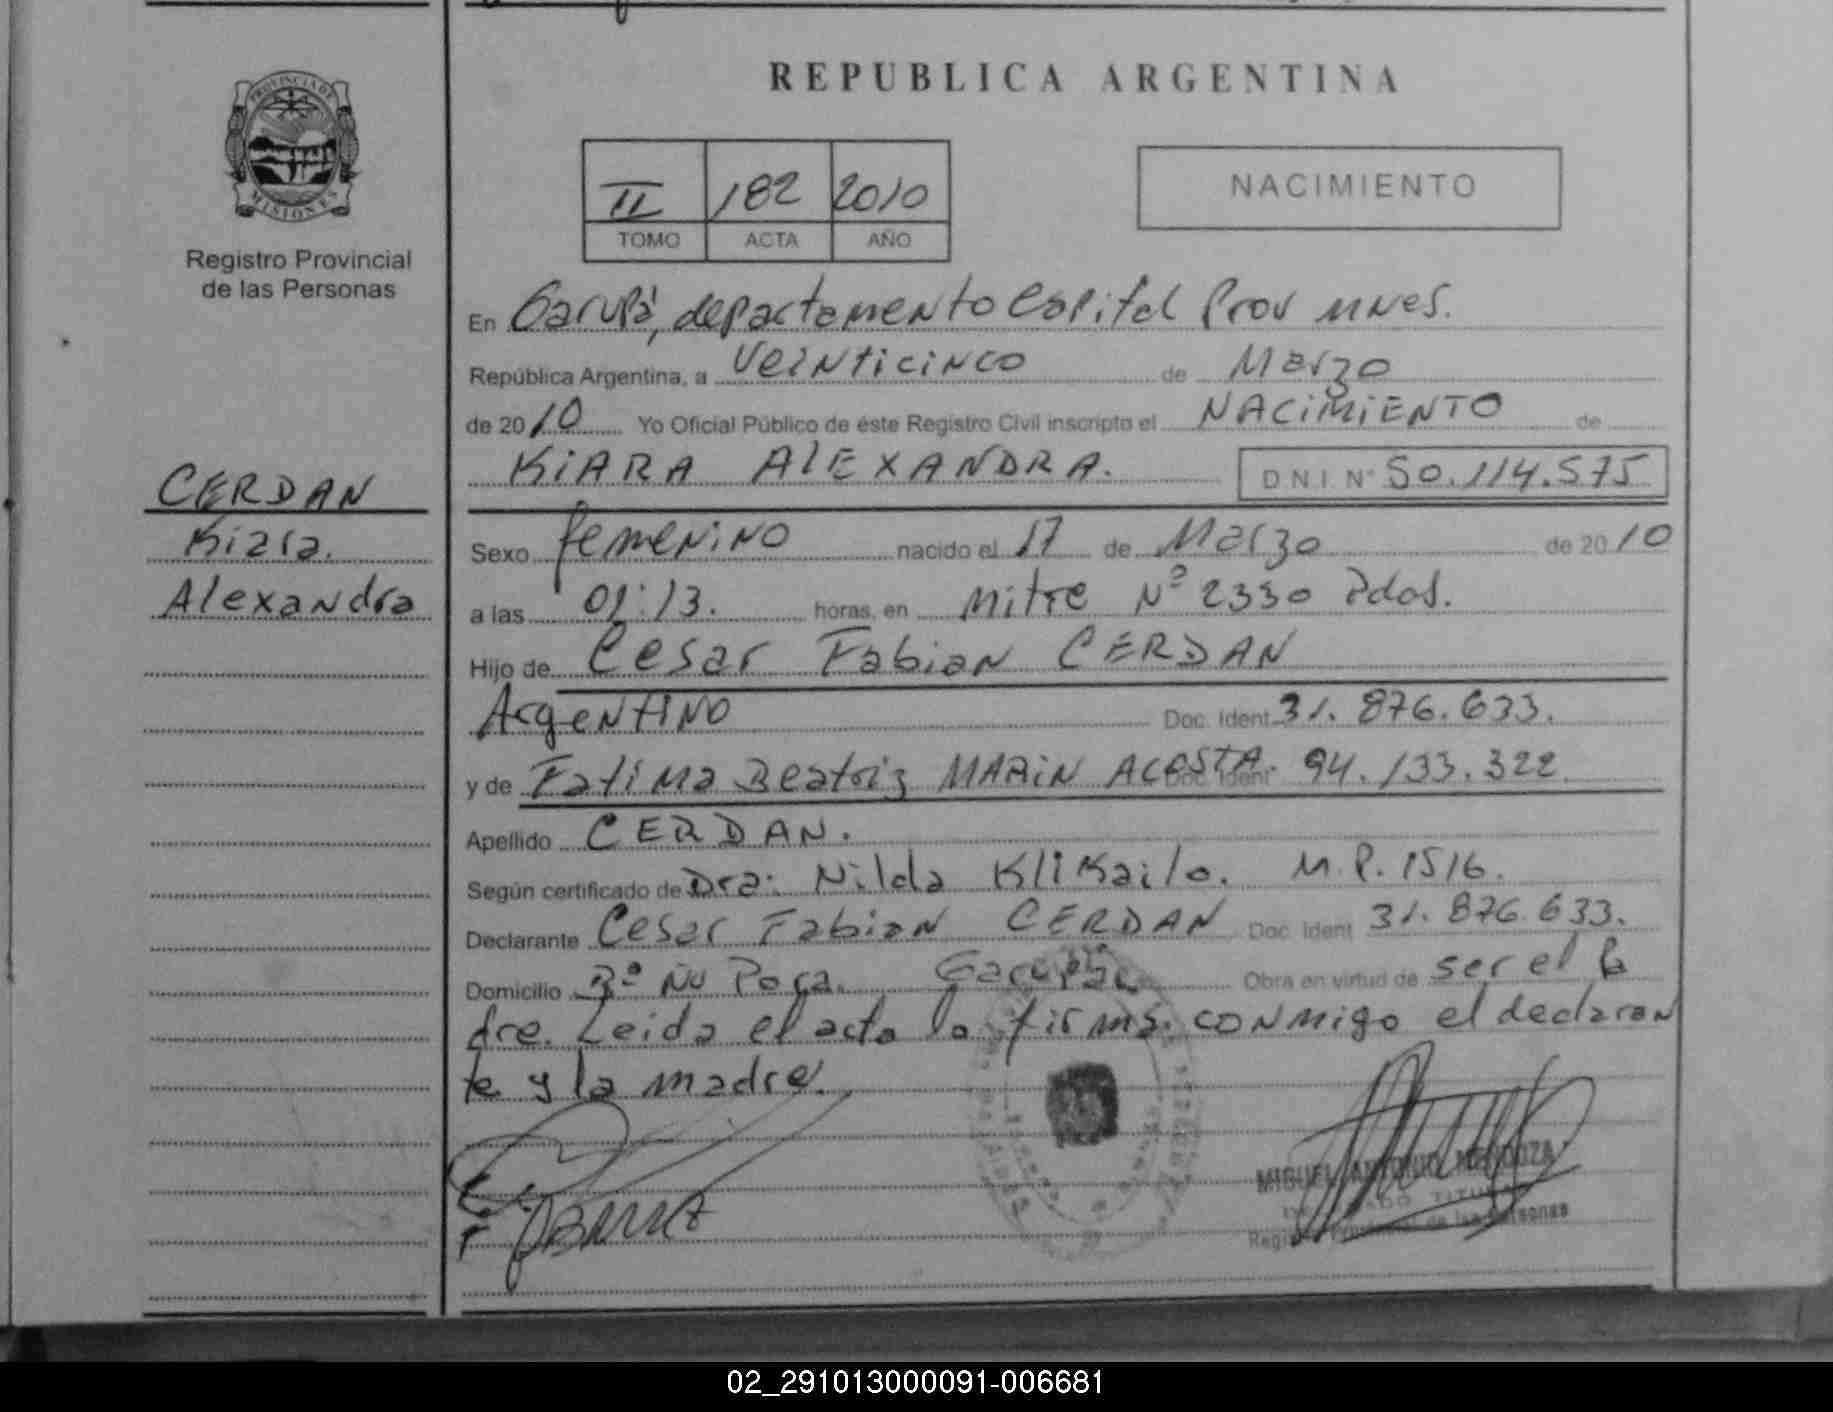 REPUBLICA ARGENTINA
PROVINCIA DE MISIONES
Registro Provincial
de las Personas
II 182 2010
TOMO ACTA AÑO
NACIMIENTO
En Garupá, departamento Capital Prov Mnes.
República Argentina, a Veinticinco de Marzo
de 2010 Yo Oficial Público de éste Registro Civil inscripto el NACIMIENTO de
KIARA ALEXANDRA. D.N.I. Nº 50.114.575
CERDAN
Kiara.
Alexandra
Sexo femenino nacido el 17 de Marzo de 2010
a las 01:13. horas, en Mitre Nº 2330 Pdas.
Hijo de Cesar Fabian CERDAN
Argentino Doc. Ident 31.876.633.
y de Fatima Beatriz MARIN ACOSTA. Doc. Ident 94.133.322
Apellido CERDAN.
Según certificado de Dra: Nilda Klikailo. M.P. 1516.
Declarante Cesar Fabian CERDAN Doc. Ident 31.876.633.
Domicilio Bº Ñu Pora. Garupá. Obra en virtud de ser el Pa
dre. Leida el acta la firma conmigo el declaran
te y la madre.
MIGUEL ANTONIO MENDOZA
TITULAR
Registro Provincial de las Personas
02_291013000091-006681